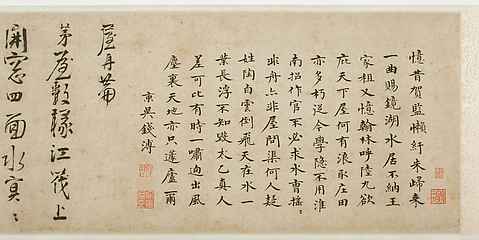 憶昔賀監懶紆朱歸来
一曲賜鏡湖水居不納王
家租又憶翰林呼陸九欲
庇天下屋何有浪取左田
亦多朽逕令學隱不用淮
南招作官不必求水曹搖〻
非舟亦非屋問渠何人起
姓陶白雲倒飛天在水一
葉長浮不知毀太乙真人
差可比有時一嘯迪出風
塵裏天地亦只蘧廬二爾
東吳錢溥
屋舟篇
茅屋數椽江筏上
開窓四面水實〻